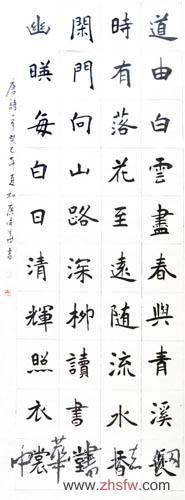 道由白雲盡春與青溪
時有落花至遠随流水香
閑門向山路深柳讀書
幽暎每白日清輝照衣裳
唐詩一首癸巳年夏初
www.zhsfw.com